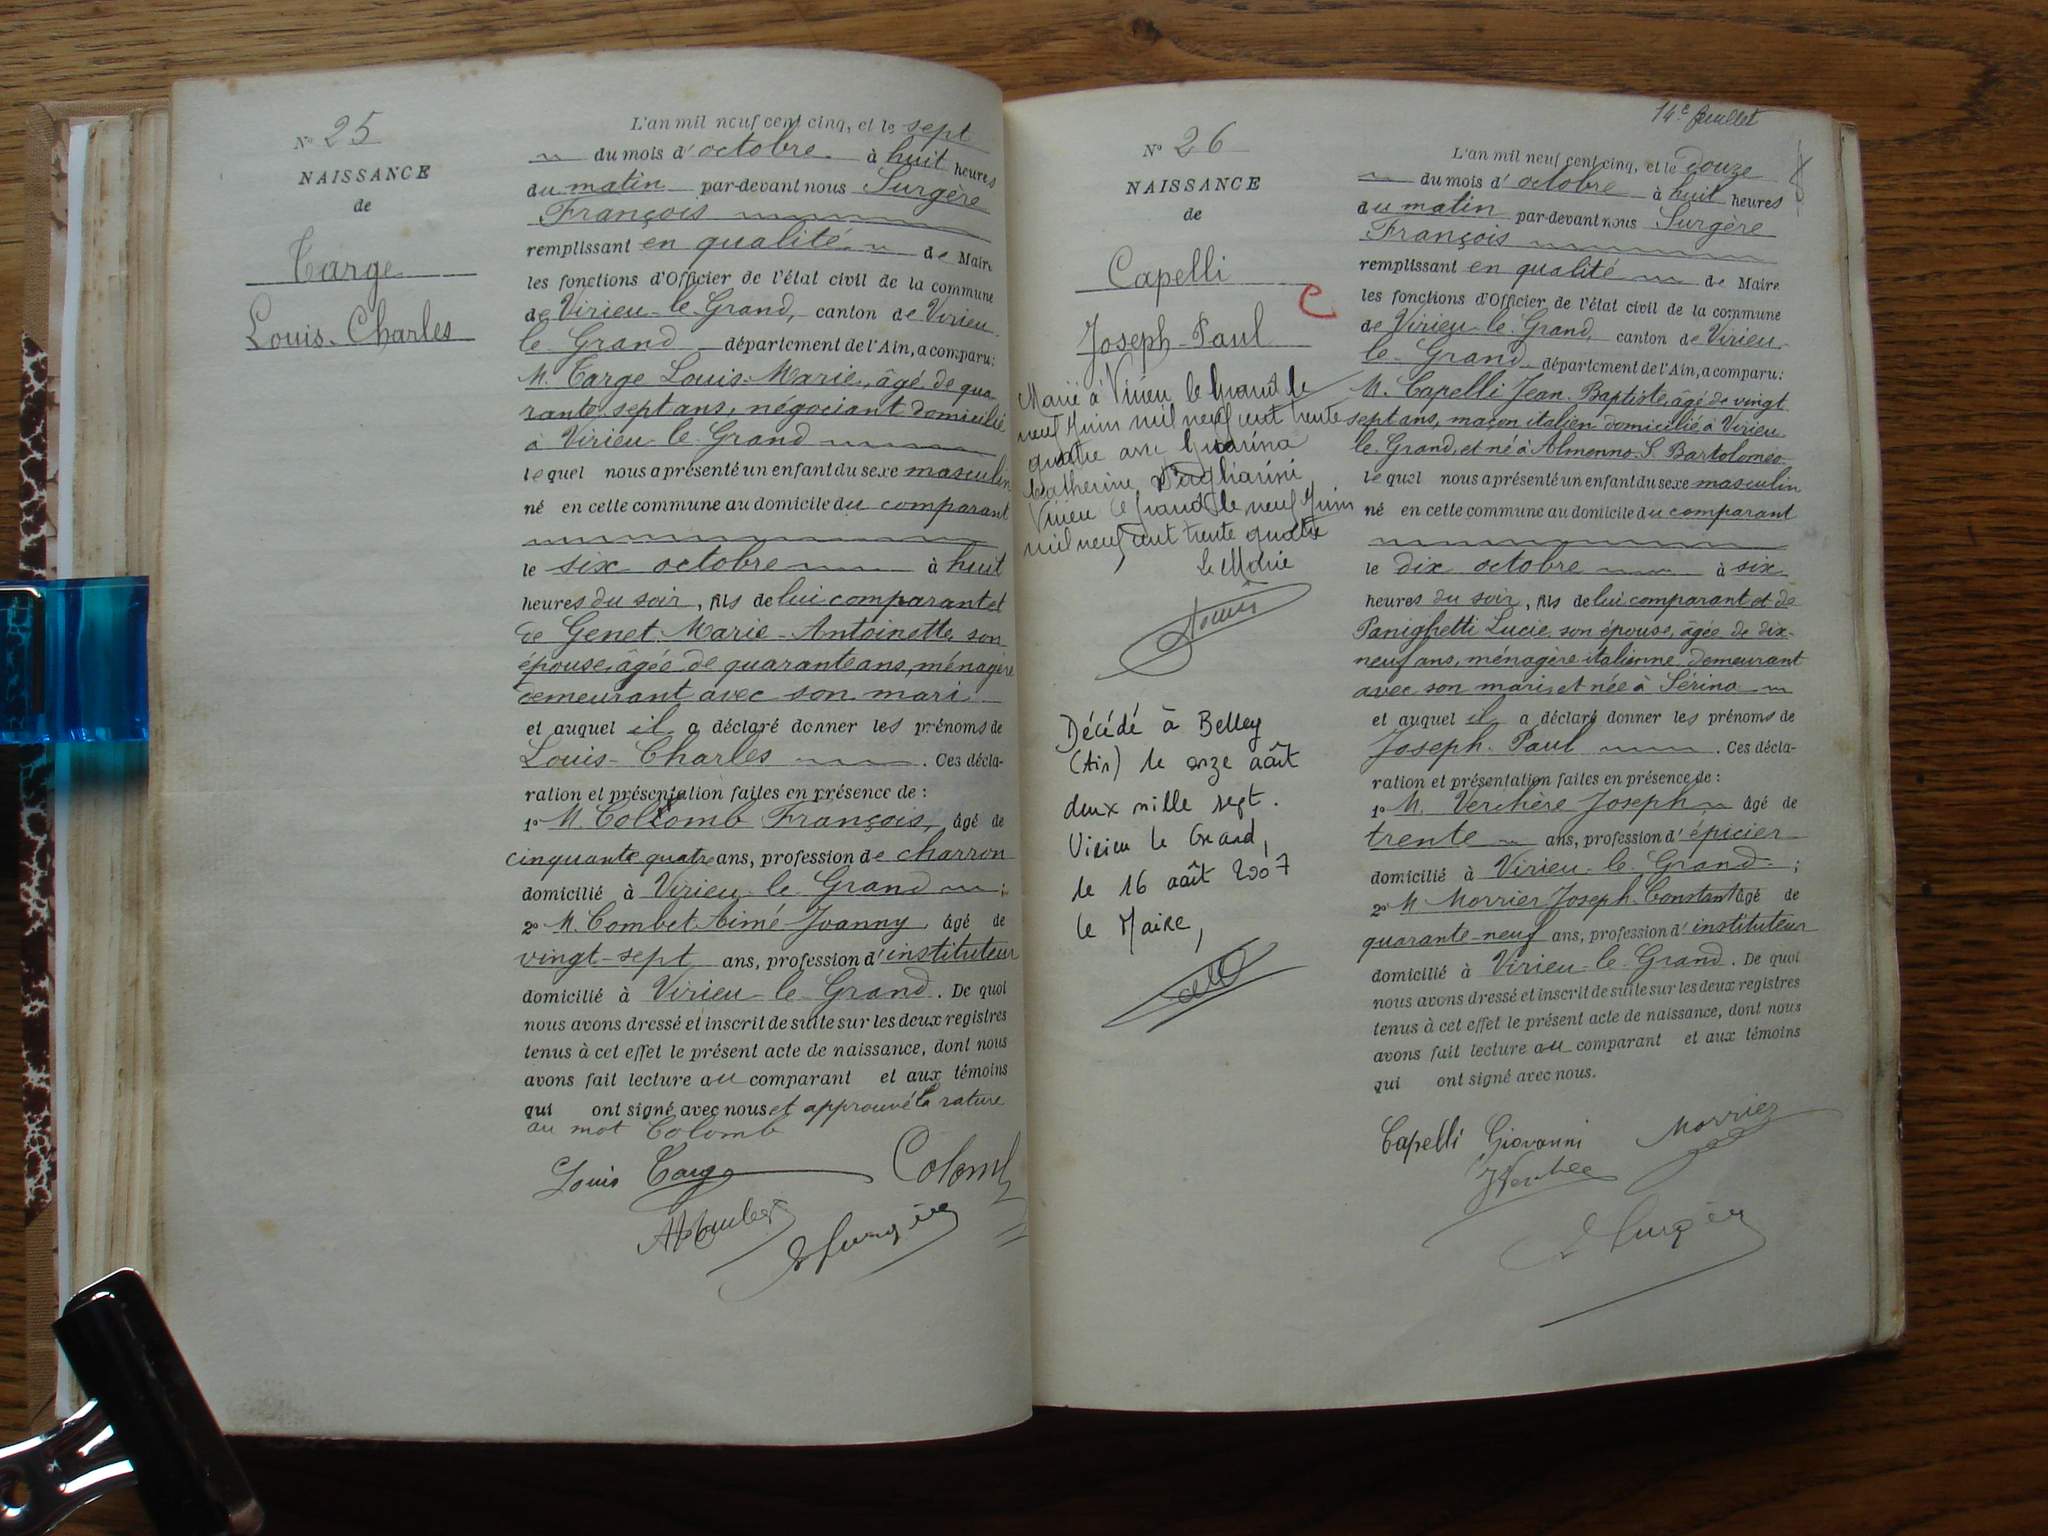 N° 25
NAISSANCE
de
Targe
Louis-Charles
L'an mil neuf cent cinq, et le sept
du mois d'octobre à huit heures
du matin par-devant nous Surgère
François
remplissant en qualité de Maire
les fonctions d'Officier de l'état civil de la commune
de Virieu-le-Grand, canton de Virieu-
le-Grand département de l'Ain, a comparu:
M. Targe Louis-Marie, âgé de qua-
rante sept ans, négociant domicilié
à Virieu-le-Grand
lequel nous a présenté un enfant du sexe masculin
né en cette commune au domicile du comparant
le six octobre à huit
heures du soir, fils de lui comparant et
de Genet Marie-Antoinette son
épouse, âgée de quarante ans, ménagère
demeurant avec son mari
et auquel il a déclaré donner les prénoms de
Louis-Charles. Ces décla-
ration et présentation faites en présence de :
1° M. Colomb François, âgé de
cinquante quatre ans, profession de charron
domicilié à Virieu-le-Grand ;
2° M. Combet Aimé Joanny, âgé de
vingt-sept ans, profession d'instituteur
domicilié à Virieu-le-Grand. De quoi
nous avons dressé et inscrit de suite sur les deux registres
tenus à cet effet le présent acte de naissance, dont nous
avons fait lecture au comparant et aux témoins
qui ont signé avec nous et approuvé la rature
au mot Colomb
Louis Targe Colomb
Surgère
14e feuillet
N° 26
NAISSANCE
de
Capelli
C
Joseph-Paul
Marié à Virieu le Grand le
neuf Juin mil neuf cent trente
quatre avec Guarina
Catherine
Virieu le Grand le neuf Juin
mil neuf cent trente quatre
Le Maire
Décédé à Belley
(Ain) le onze août
deux mille sept.
Virieu le Grand,
le 16 août 2007
le Maire,
L'an mil neuf cent cinq, et le douze
du mois d'octobre à huit heures
du matin par-devant nous Surgère
François
remplissant en qualité de Maire
les fonctions d'Officier de l'état civil de la commune
de Virieu-le-Grand, canton de Virieu-
le-Grand département de l'Ain, a comparu:
M. Capelli Jean-Baptiste, âgé de vingt
sept ans, maçon italien domicilié à Virieu-
le-Grand, et né à Almenno S. Bartolomeo
lequel nous a présenté un enfant du sexe masculin
né en cette commune au domicile du comparant
le dix octobre à six
heures du soir, fils de lui comparant et de
Panighetti Lucie son épouse, âgée de dix-
neuf ans, ménagère italienne demeurant
avec son mari, et née à Sérina
et auquel il a déclaré donner les prénoms de
Joseph-Paul. Ces décla-
ration et présentation faites en présence de :
1° M. Verchère Joseph âgé de
trente ans, profession d'épicier
domicilié à Virieu-le-Grand ;
2° M Morrier Joseph-Constant âgé de
quarante-neuf ans, profession d'instituteur
domicilié à Virieu-le-Grand. De quoi
nous avons dressé et inscrit de suite sur les deux registres
tenus à cet effet le présent acte de naissance, dont nous
avons fait lecture au comparant et aux témoins
qui ont signé avec nous.
Capelli Giovanni Morrier
Surgère